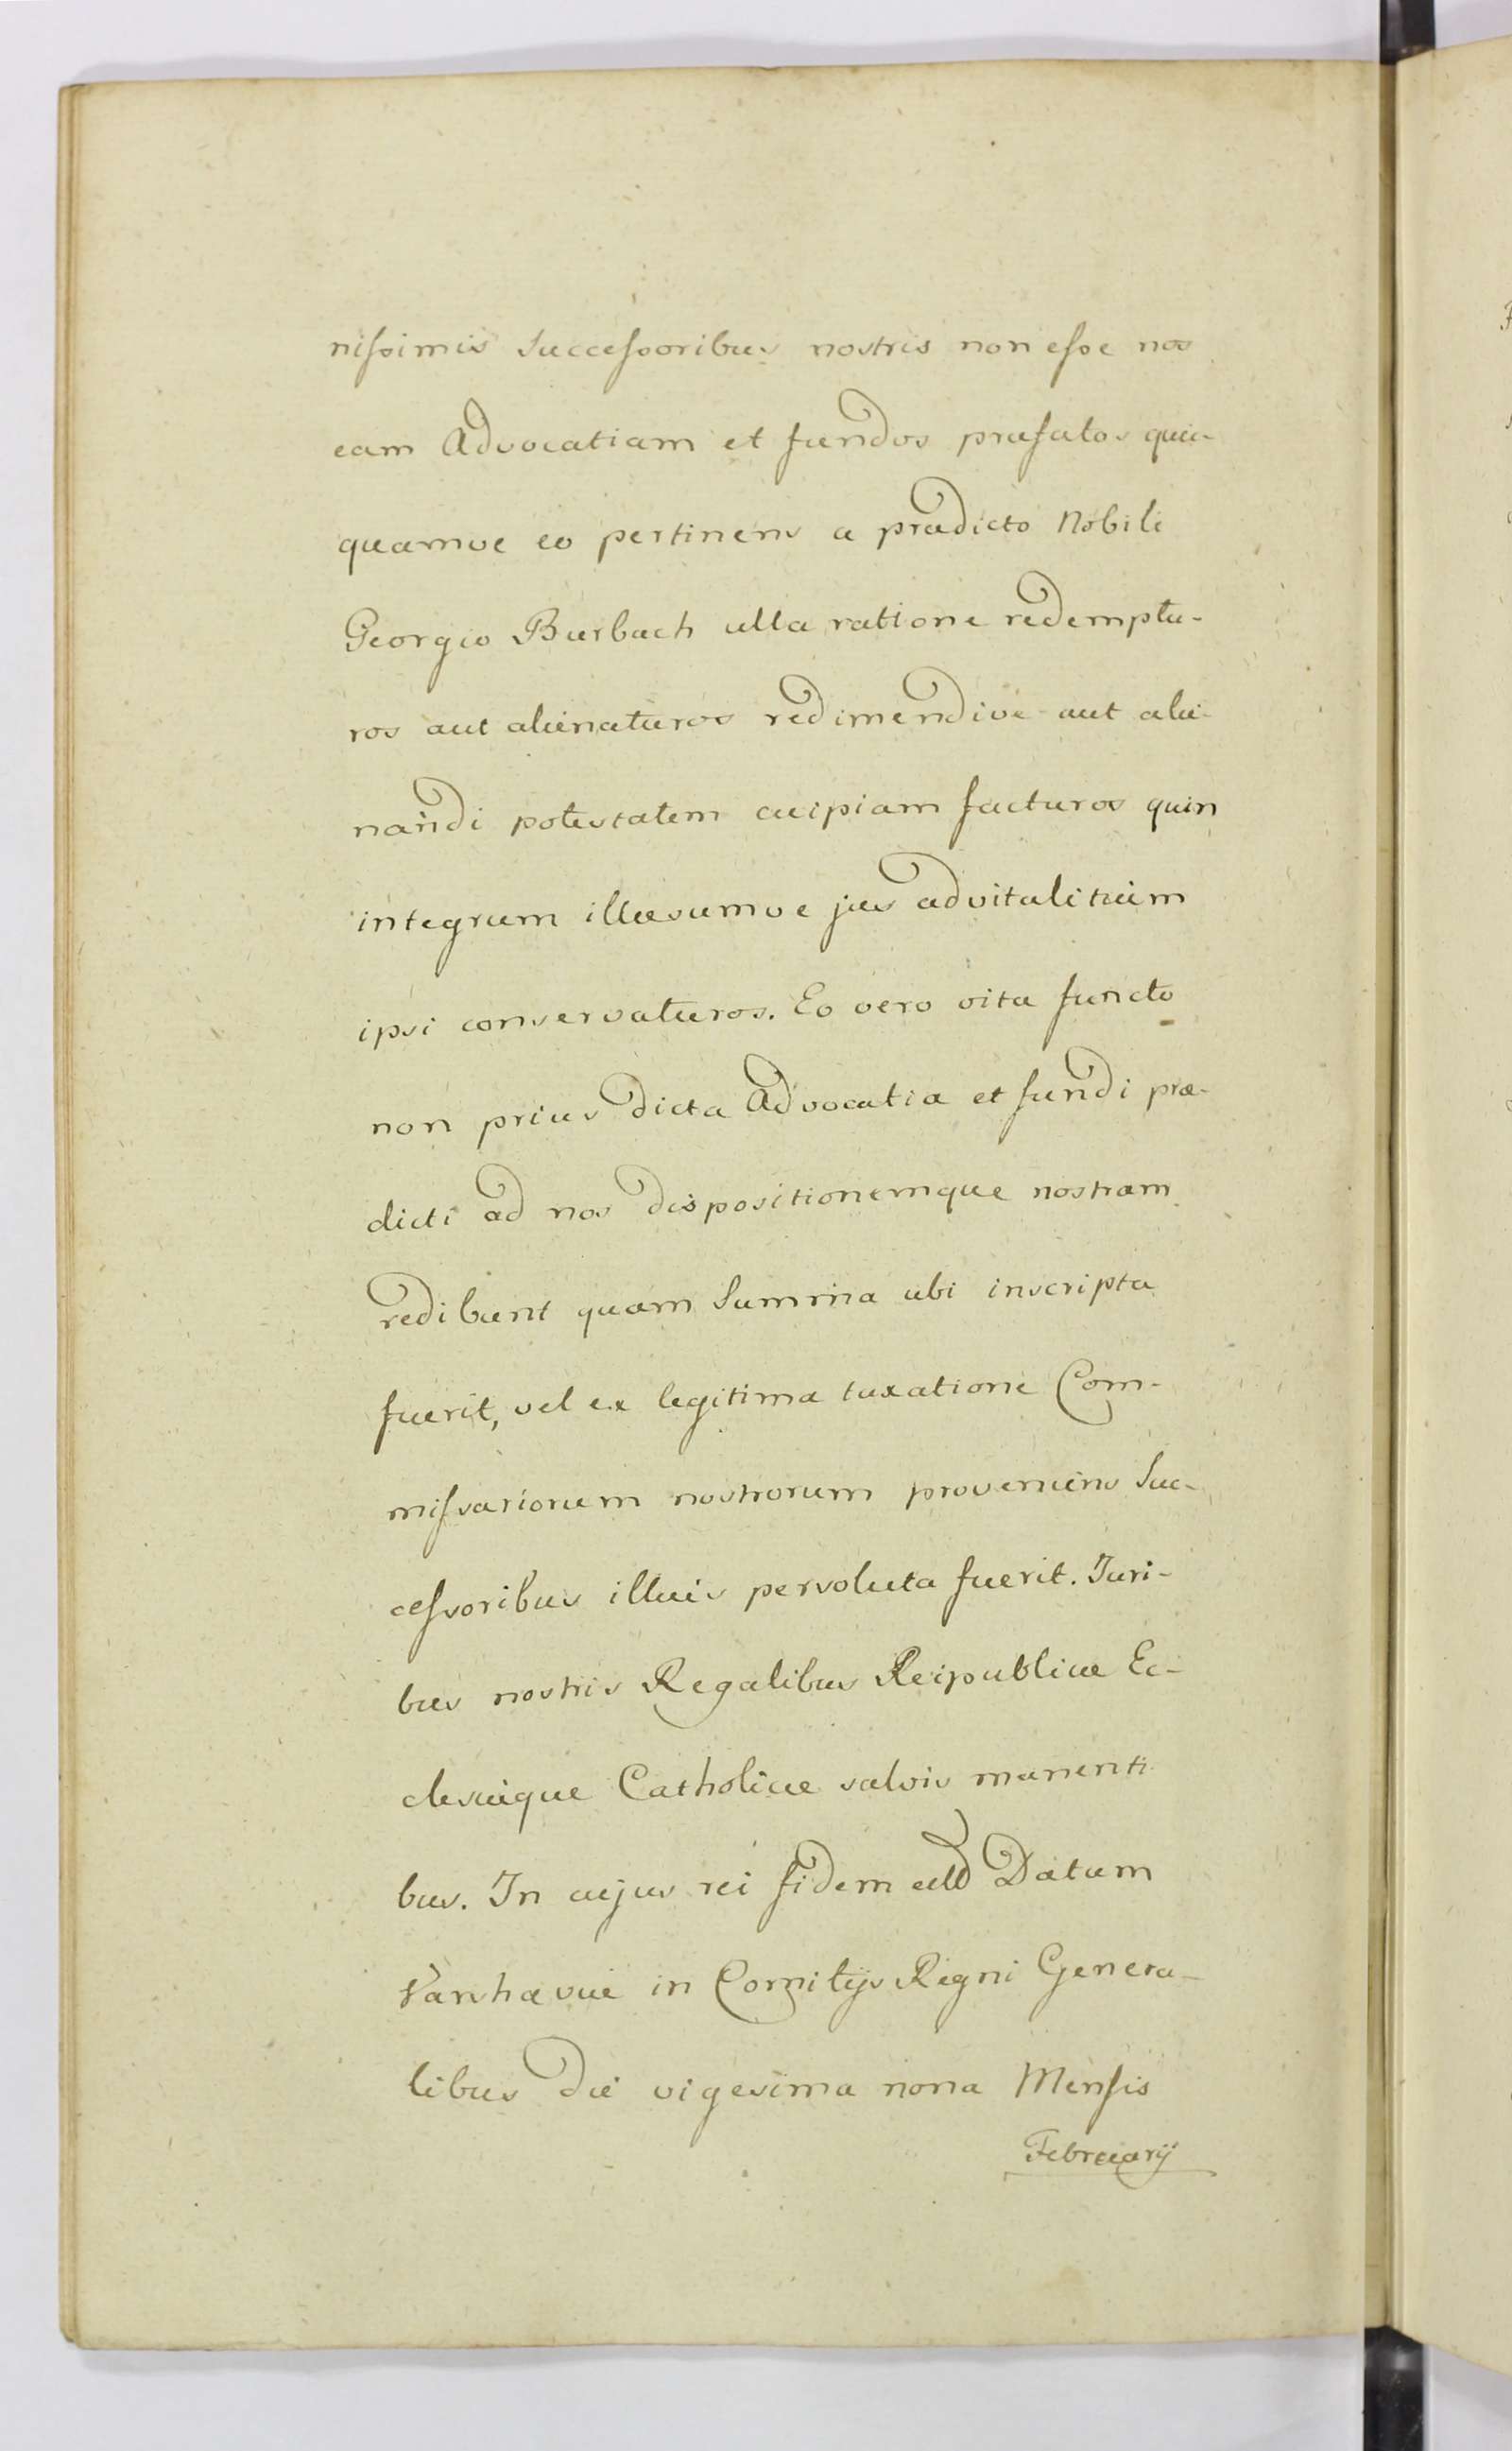 nissimis Successoribus nostris non esse nos
eam Advocatiam et fundos præfatos quic-
quamve eo pertinens a prædicto Nobili
Georgio Burbach ulla ratione redemptu-
ros aut alienaturos redimendive aut alie-
nandi potestatem cuipiam facturos quin
integrum illæsumve jus advitalitium
ipsi conservaturos. Eo vero vita functo
non prius dicta Advocatia et fundi præ-
dicti ad nos dispositionemque nostram
redibunt quam Summa ubi inscripta
fuerit, vel ex legitima taxatione Com-
missariorum nostrorum proveniens Suc-
cessoribus illius persoluta fuerit. Juri-
bus nostris Regalibus Reipublicæ Ec-
clesiæque Catholicæ salvis manenti
bus. In cujus rei fidem Datum
Varshaviæ in Comitijs Regni Genera-
libus die vigesima nona Mensis
Februarij